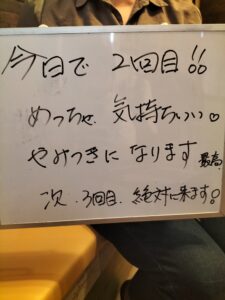 今日で 2回目!!
めっちゃ、気持ちいい♡
やみつきになります 最高
次、3回目、絶対に来ます!